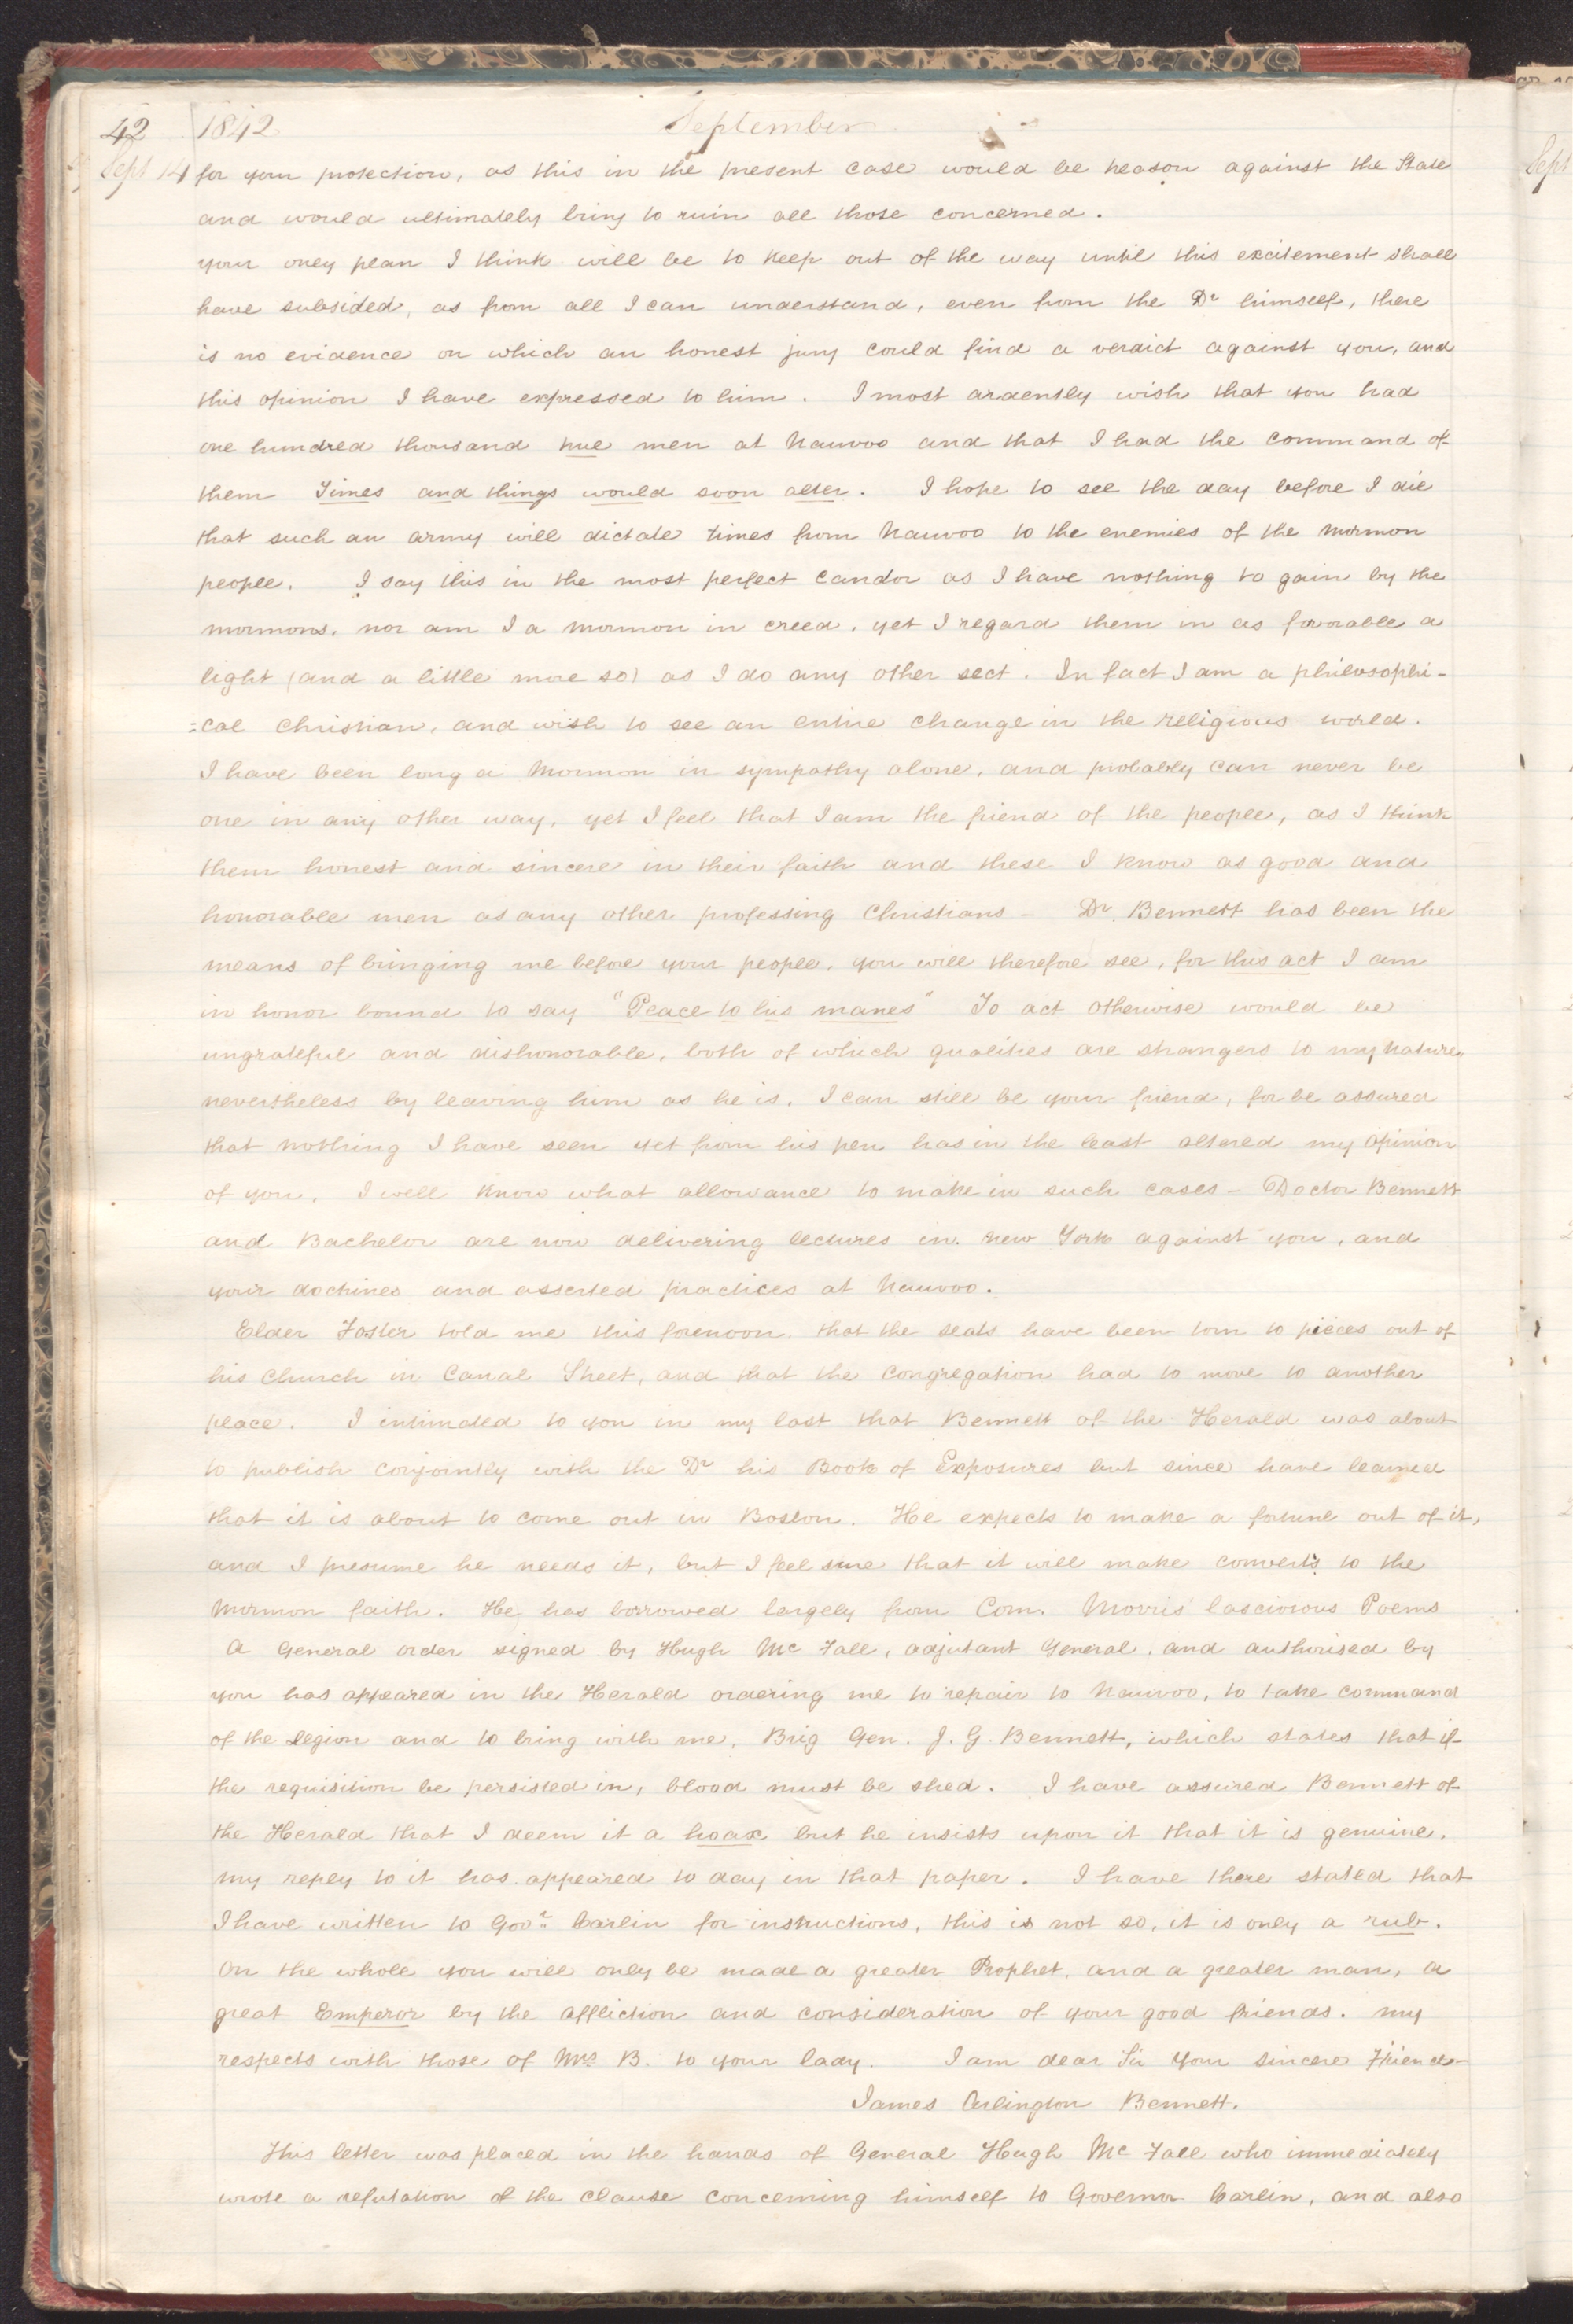 42 1842 September
Sept 14 for your protection, as this in the present case would be treason against the State
and would ultimately bring to ruin all those concerned.
your only plan I think will be to keep out of the way until this excitement shall
have subsided, as from all I can understand, even from the Dr himself, there
is no evidence on which an honest jury could find a verdict against you, and
this opinion I have expressed to him. I most ardently wish that you had
one hundred thousand true men at Nauvoo and that I had the command of
them Times and things would soon alter. I hope to see the day before I die
that such an army will dictate times from Nauvoo to the enemies of the Mormon
people. I say this in the most perfect candor as I have nothing to gain by the
mormons, nor am I a mormon in creed, yet I regard them in as favorable a
light (and a little more so) as I do any other sect. In fact I am a philosophi-
=cal christian, and wish to see an entire change in the religious world.
I have been long a Mormon in sympathy alone, and probably can never be
one in any other way, yet I feel that I am the friend of the people, as I think
them honest and sincere in their faith and these I know as good and
honorable men as any other professing Christians – Dr. Bennett has been the
means of bringing me before your people, you will therefore see, for this act I am
in honor bound to say "Peace to his manes" To act otherwise would be
ungrateful and dishonorable, both of which qualities are strangers to my nature,
nevertheless by leaving him as he is, I can still be your friend, for be assured
that nothing I have seen yet from his pen has in the least altered my opinion
of you. I well know what allowance to make in such cases – Doctor Bennett
and Bachelor are now delivering lectures in New York against you, and
your doctrines and asserted practices at Nauvoo.
Elder Foster told me this forenoon that the seats have been torn to pieces out of
his church in Canal Street, and that the congregation had to move to another
place. I intimated to you in my last that Bennett of the Herald was about
to publish conjointly with the Dr his Book of Exposures but since have learned
that it is about to come out in Boston. He expects to make a fortune out of it,
and I presume he needs it, but I feel sure that it will make converts to the
Mormon faith. He has borrowed largely from Com. Morris' lascivious Poems
A General order signed by Hugh Mc Fall, adjutant General, and authorised by
you has appeared in the Herald ordering me to repair to Nauvoo, to take command
of the legion and to bring with me, Brig Gen. J. G. Bennett, which states that if
the requisition be persisted in, blood must be shed. I have assured Bennett of
the Herald that I deem it a hoax but he insists upon it that it is genuine.
my reply to it has appeared to day in that paper. I have there stated that
I have written to Govr Carlin for instructions, this is not so, it is only a rub.
On the whole you will only be made a greater Prophet, and a greater man, a
great Emperor by the affliction and consideration of your good friends. my
respects with those of Mrs B. to your lady. I am dear Sir your sincere Friend–
James Arlington Bennett.
This letter was placed in the hands of General Hugh Mc Fall who immediately
wrote a refutation of the clause concerning himself to Governor Carlin, and also
Sept